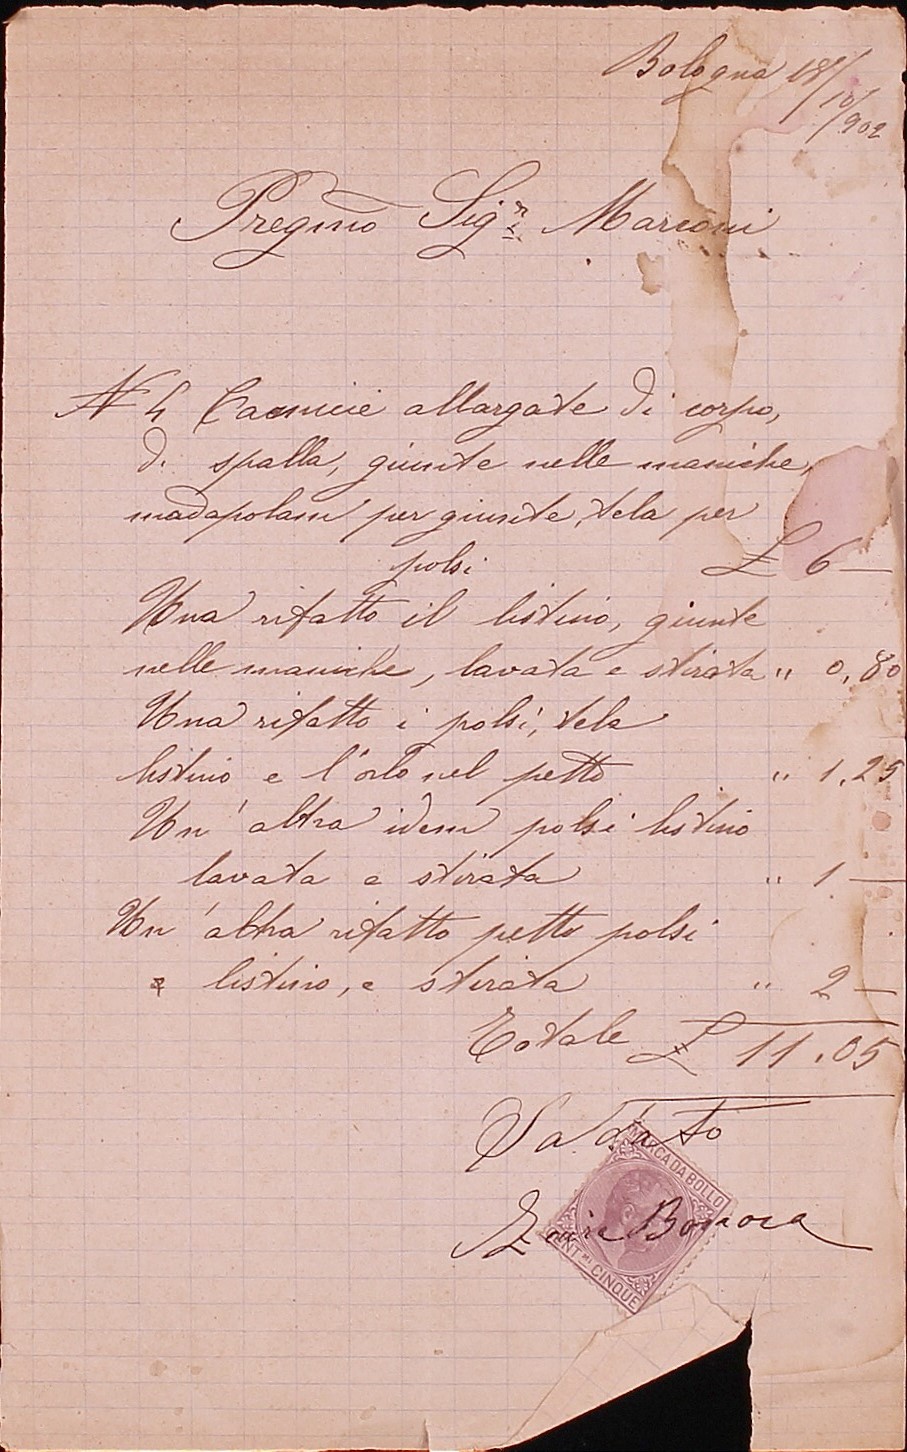 Bologna 18/
10/902
Pregmo Sigr. Marconi
N 4 Camicie allargate di corpo,
di spalla, giunte nelle maniche,
madapolam per giunte, tela per
polsi £ 6 —
Una rifatto il listino, giunte
nelle maniche, lavata e stirata " 0,80
Una rifatto i polsi, tela
listino e l'orlo nel petto " 1,25
Un'altra idem polsi listino
lavata e stirata " 1 —
Un'altra rifatto petto polsi
e listino, e stirata " 2 —
Totale £ 11.05
Saldato
MARCA DA BOLLO
Bonora
CENTMI CINQUE